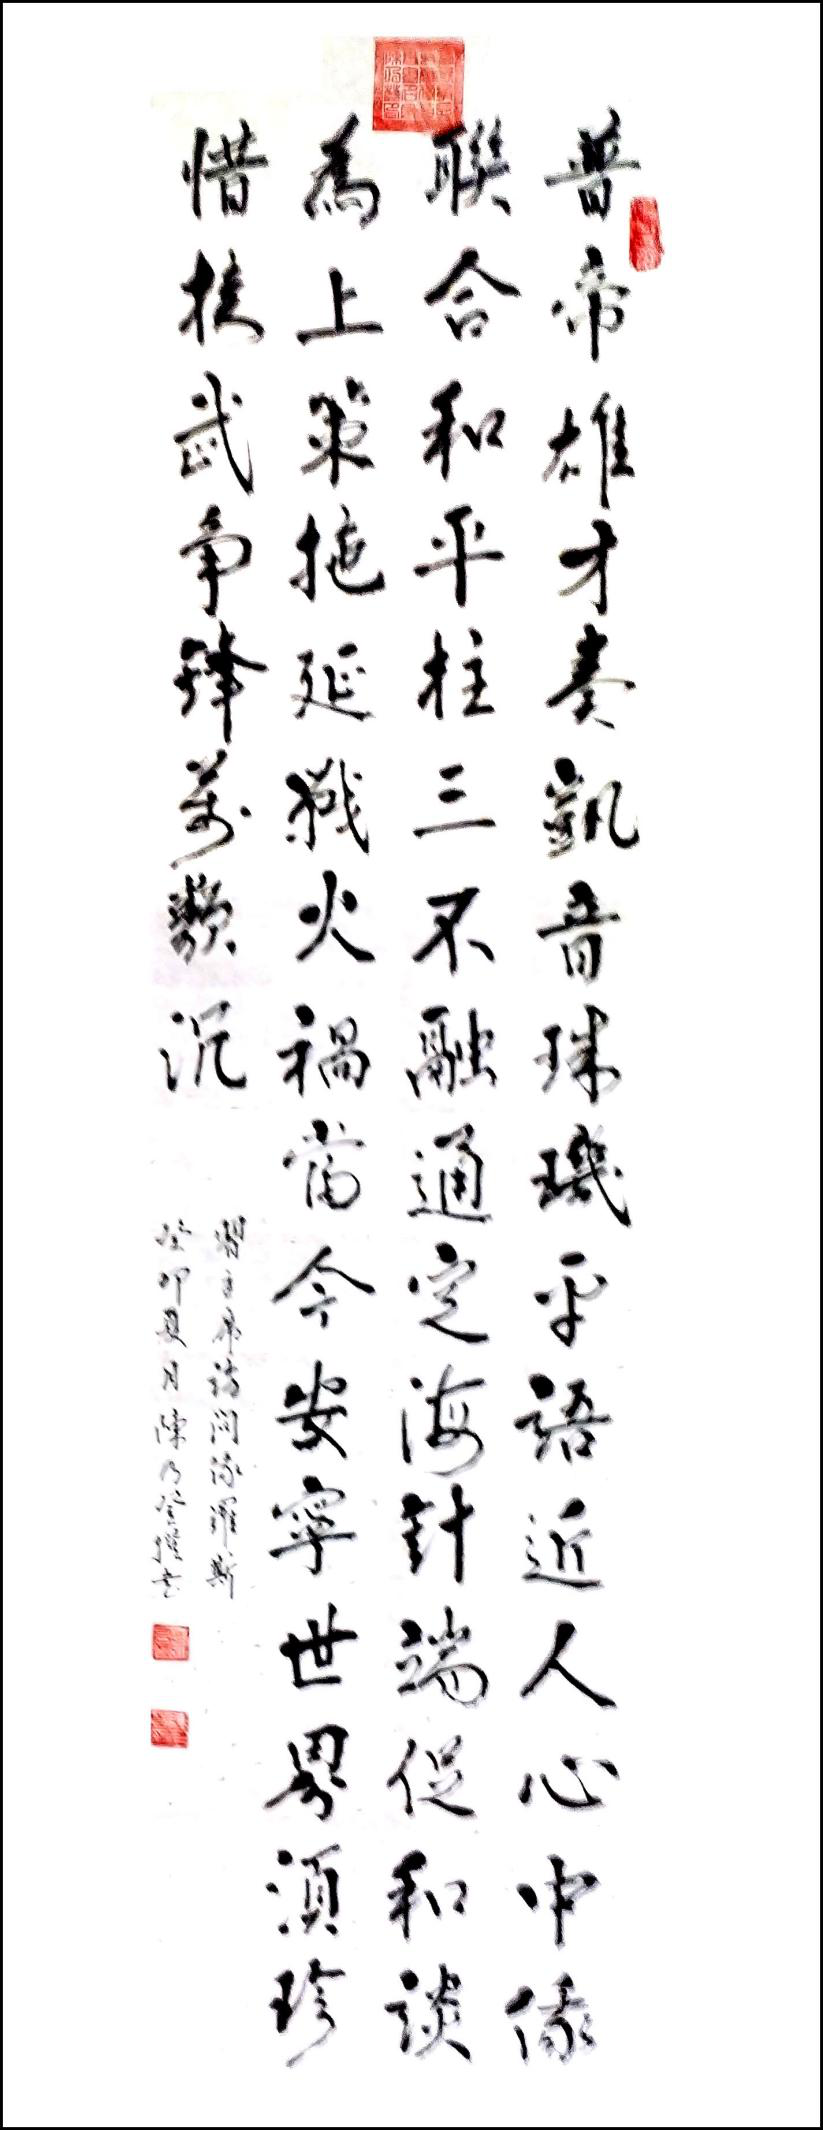 普帝雄才奏凱音珠璣平語近人心中俄
聯合和平柱三不融通定海針端促和談
為上策拖延戰火禍當今安寧世界須珍
惜挾武爭鋒萬籟沉
習主席訪問俄羅斯
癸卯夏月陳乃登撰書